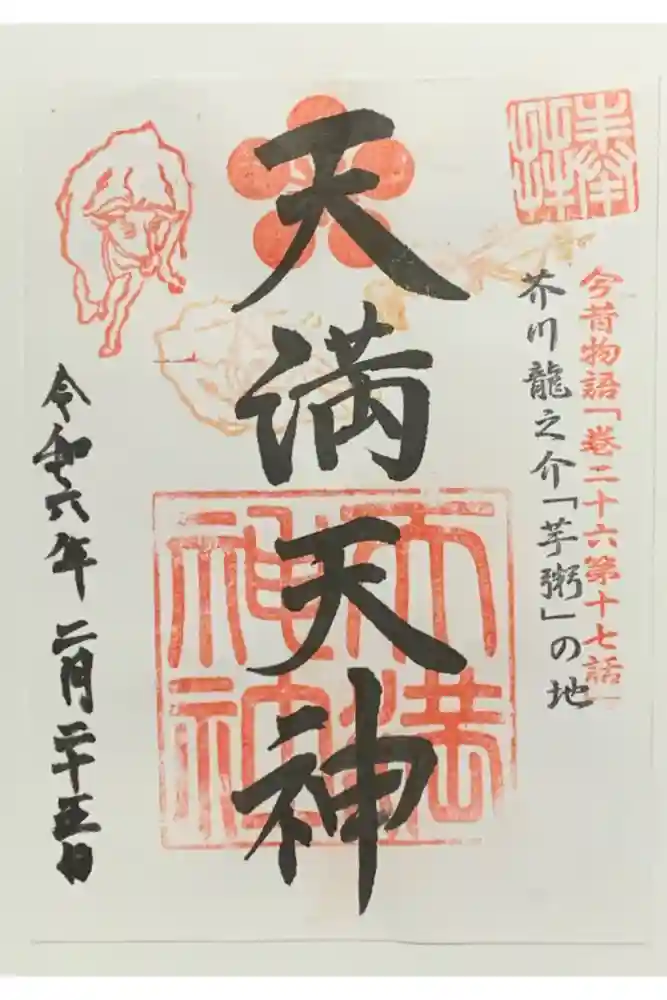 奉拝
今昔物語「巻二十六第十七話」
芥川龍之介「芋粥」の地
天満天神
令和六年二月二十五日